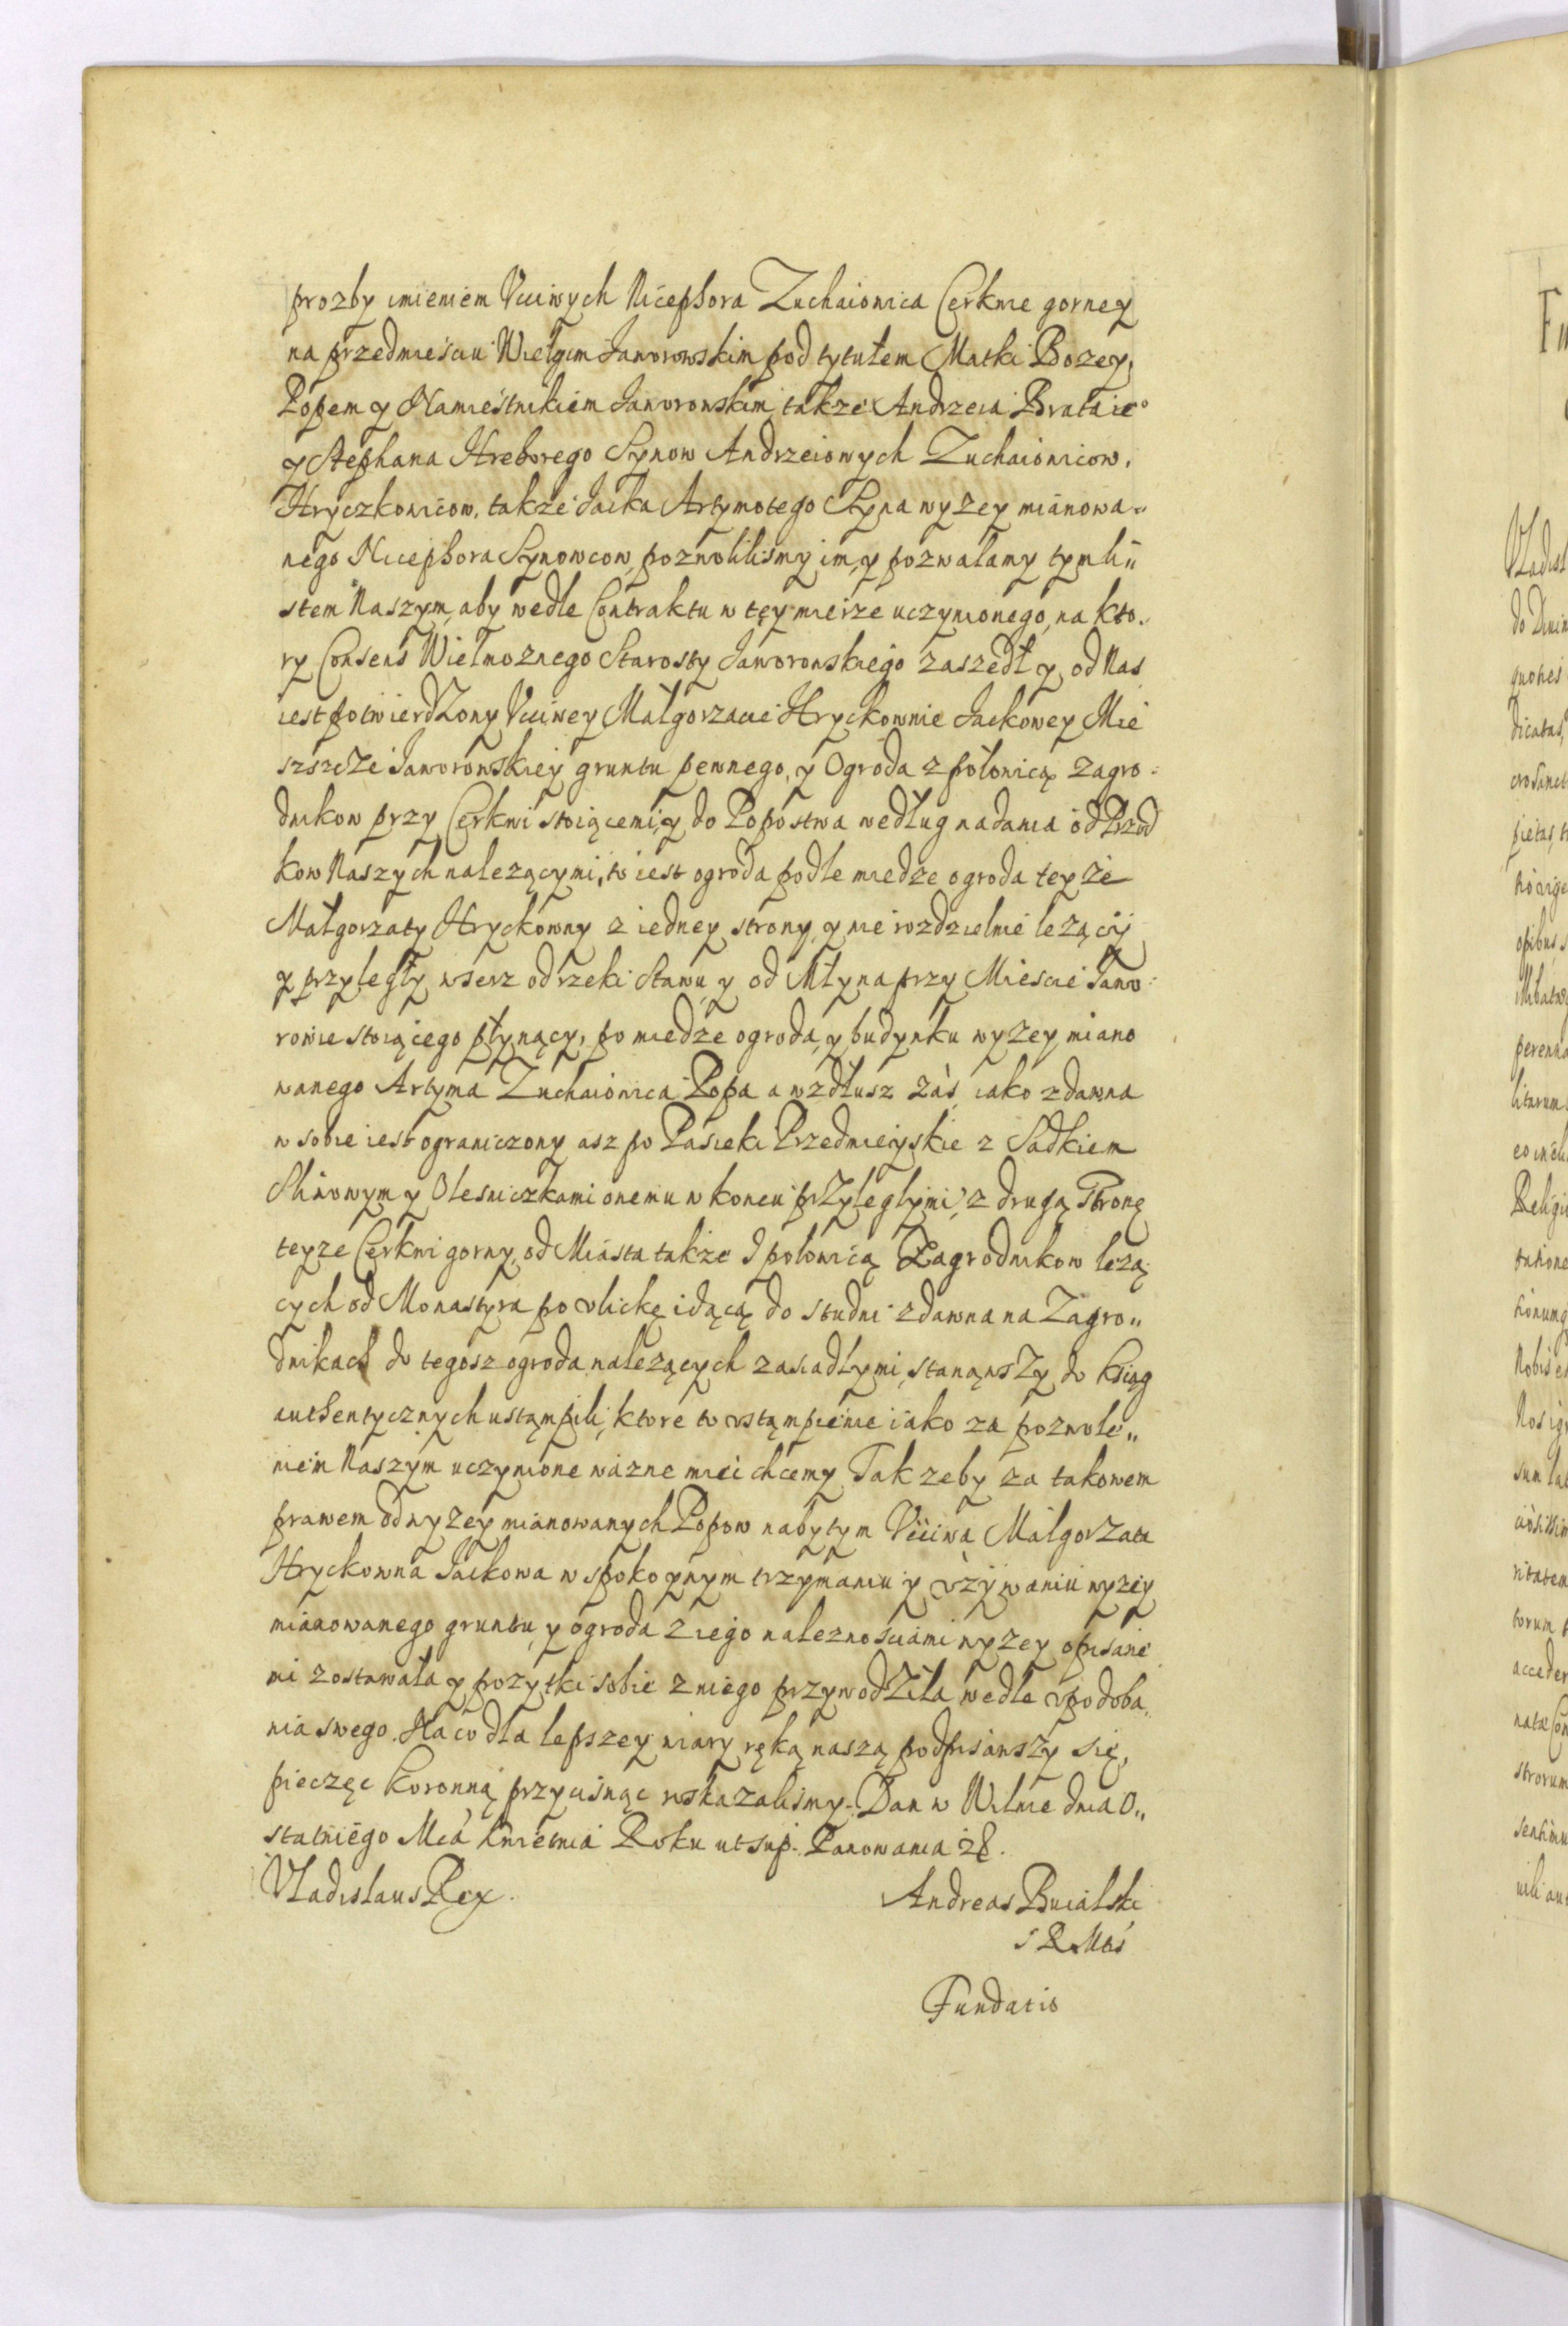 prozby imieniem Vcciwych Nicephora Zuchaiowica Cerkwie gorney
na przedmieściu Wielgim Jaworowskim pod tytułem Matki Bozey,
Popem y Namiestnikiem Jaworowskim, także Andrzeia Brata ieº
y Stephana Hreborego Synow Andrzeiowych Zuchaiowicow,
Hryczkowicow, także Jacka Artymowego Syna wyzey mianowa„
nego Nicephora Synowcow, pozwoliliśmy im, y pozwalamy tym li„
stem Naszym, aby wedle Contraktu w tey mierze uczynionego, na kto„
ry Consens Wielmoznego Starosty Jaworowskiego zaszedł y od Nas
iest potwierdzony Vcciwey Małgorzacie Hryckownie Jackowey Mie
szszcze Jaworowskiey gruntu pewnego, y Ogroda z połowicą zagro„
dnikow przy Cerkwi stoiącemi, y do Popostwa według nadania od Przod
kow Naszych nalezącymi, to iest ogroda podle miedze ogroda teyże
Małgorzaty Hryckowny z iedney strony, y nie rozdzielnie lezący
y przyległy wserz od rzeki Stawu, y od Młyna przy Mieście Jawo„
rowie stoiącego płynący, po miedze ogroda, y budynku wyzey miano
wanego Artyma Zuchaiowica Popa a wzdłusz zaś iako zdawna
w sobie iest ograniczony asz po Pasieki Przedmieyskie z Sadkiem
Sliwowym y Olesniczkami onemu w koncu przyległymi, z drugą Stronę
teyze Cerkwi gorny, od Miasta także I połowicą Zagrodnikow lezą
cych od Monastyra po vlickę idącą do studni zdawna na Zagro„
dnikach do tegosz ogroda nalezących zasiadłymi, stanąwszy do Ksiąg
authentycznych ustąmpili, ktore to vstąmpienie iako za pozwole„
niem Naszym uczynione wazne mieć chcemy Tak zeby za takowem
prawem od wyzey mianowanych Popow nabytym Vcciwa Małgorzata
Hryckowna Jackowa w spokoynym trzymaniu y vżywaniu wyzey
mianowanego gruntu, y ogroda z iego naleznościami wyzey opisane
mi zostawała y pozytki sobie z niego przywodziła wedle vpodoba„
nia swego. Na co dla lepszey wiary ręką naszą podpisawszy się,
pieczęc Koronną przycisnąc rozkazalismy. Dan w Wilnie dnia O„
statniego Mca Kwietnia Roku ut sup. Panowania
Vladislaus Rex.
Andreas Buialski
S R Mtis
Fundatio